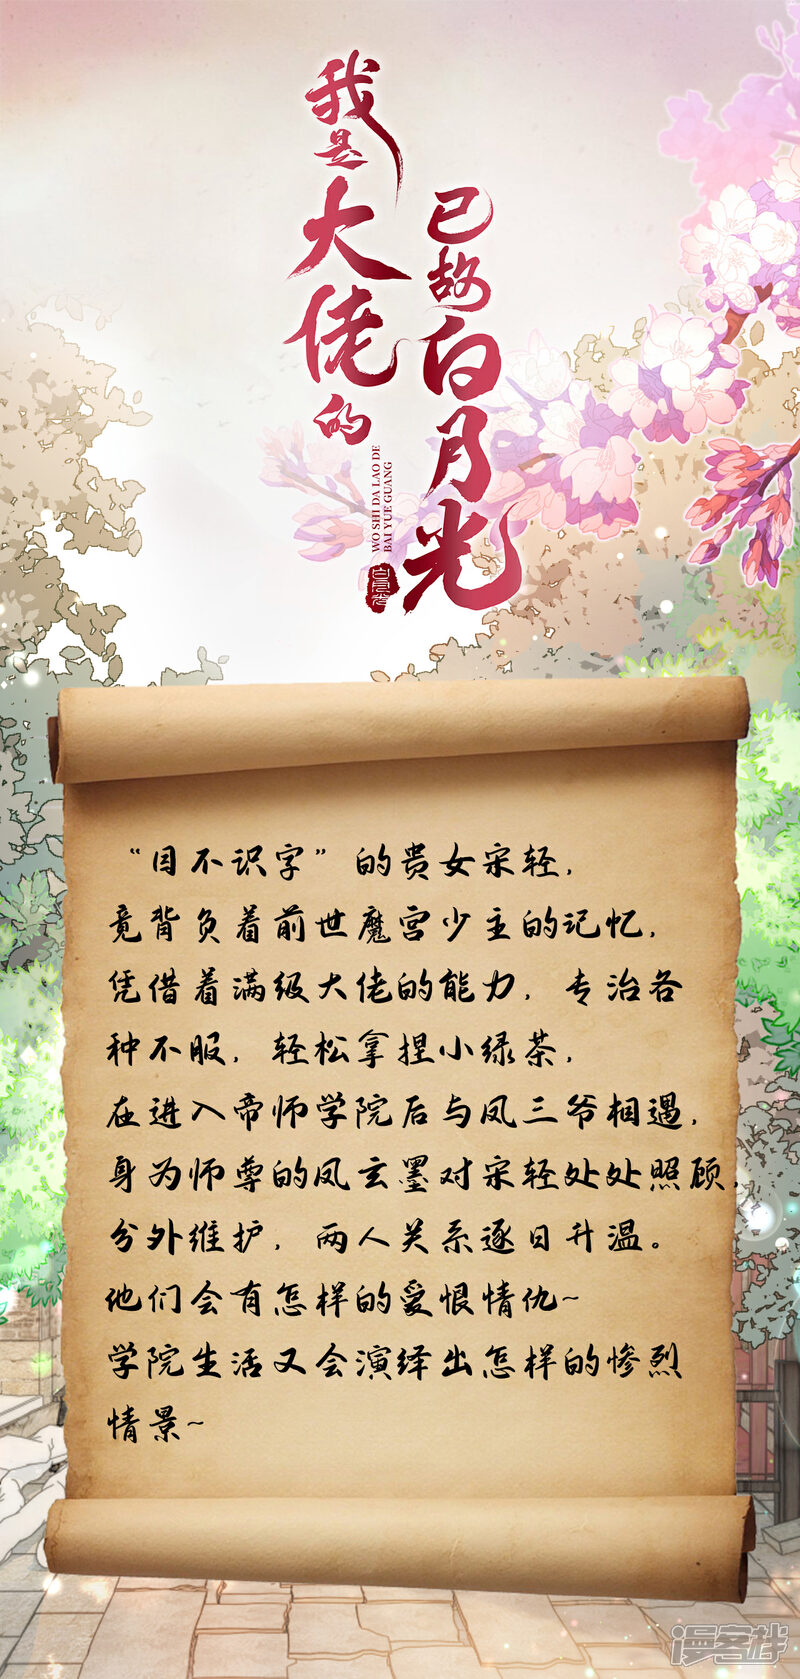 我是大佬的
已故白月光
WO SHI DA LAO DE
BAI YUE GUANG
白月光
“目不识字”的贵女宋轻，
竟背负着前世魔宫少主的记忆，
凭借着满级大佬的能力，专治各
种不服，轻松拿捏小绿茶，
在进入帝师学院后与凤三爷相遇，
身为师尊的凤玄墨对宋轻处处照顾，
分外维护，两人关系逐日升温。
他们会有怎样的爱恨情仇~
学院生活又会演绎出怎样的惨烈
情景~
漫客栈